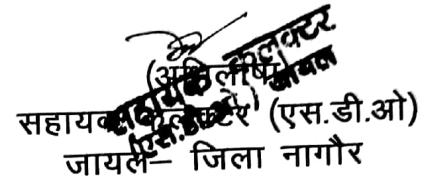 (अभिलाषा)
सहायक कलेक्टर (एस.डी.ओ)
जायल– जिला नागौर
सहायक कलक्टर
(एस.डी.ओ.) जायल